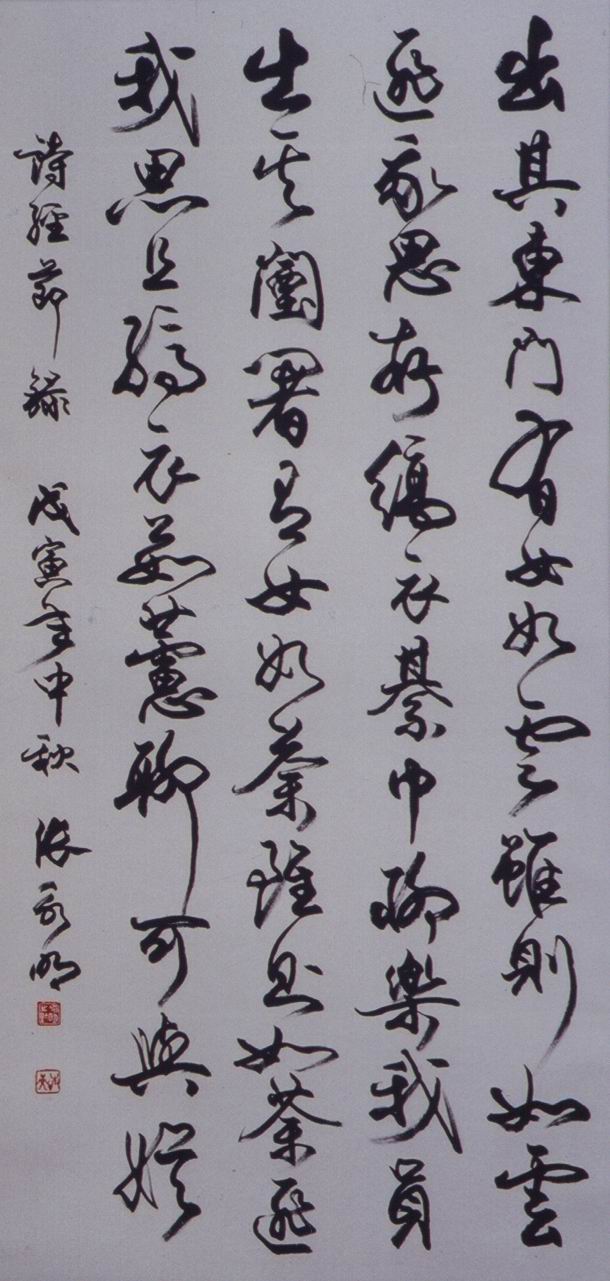 出其東門有女如雲雖則如雲
匪我思存縞衣綦巾聊樂我員
出其闉闍有女如荼雖則如荼匪
我思且縞衣茹藘聊可與娛
詩經節錄 戊寅年中秋 張永明